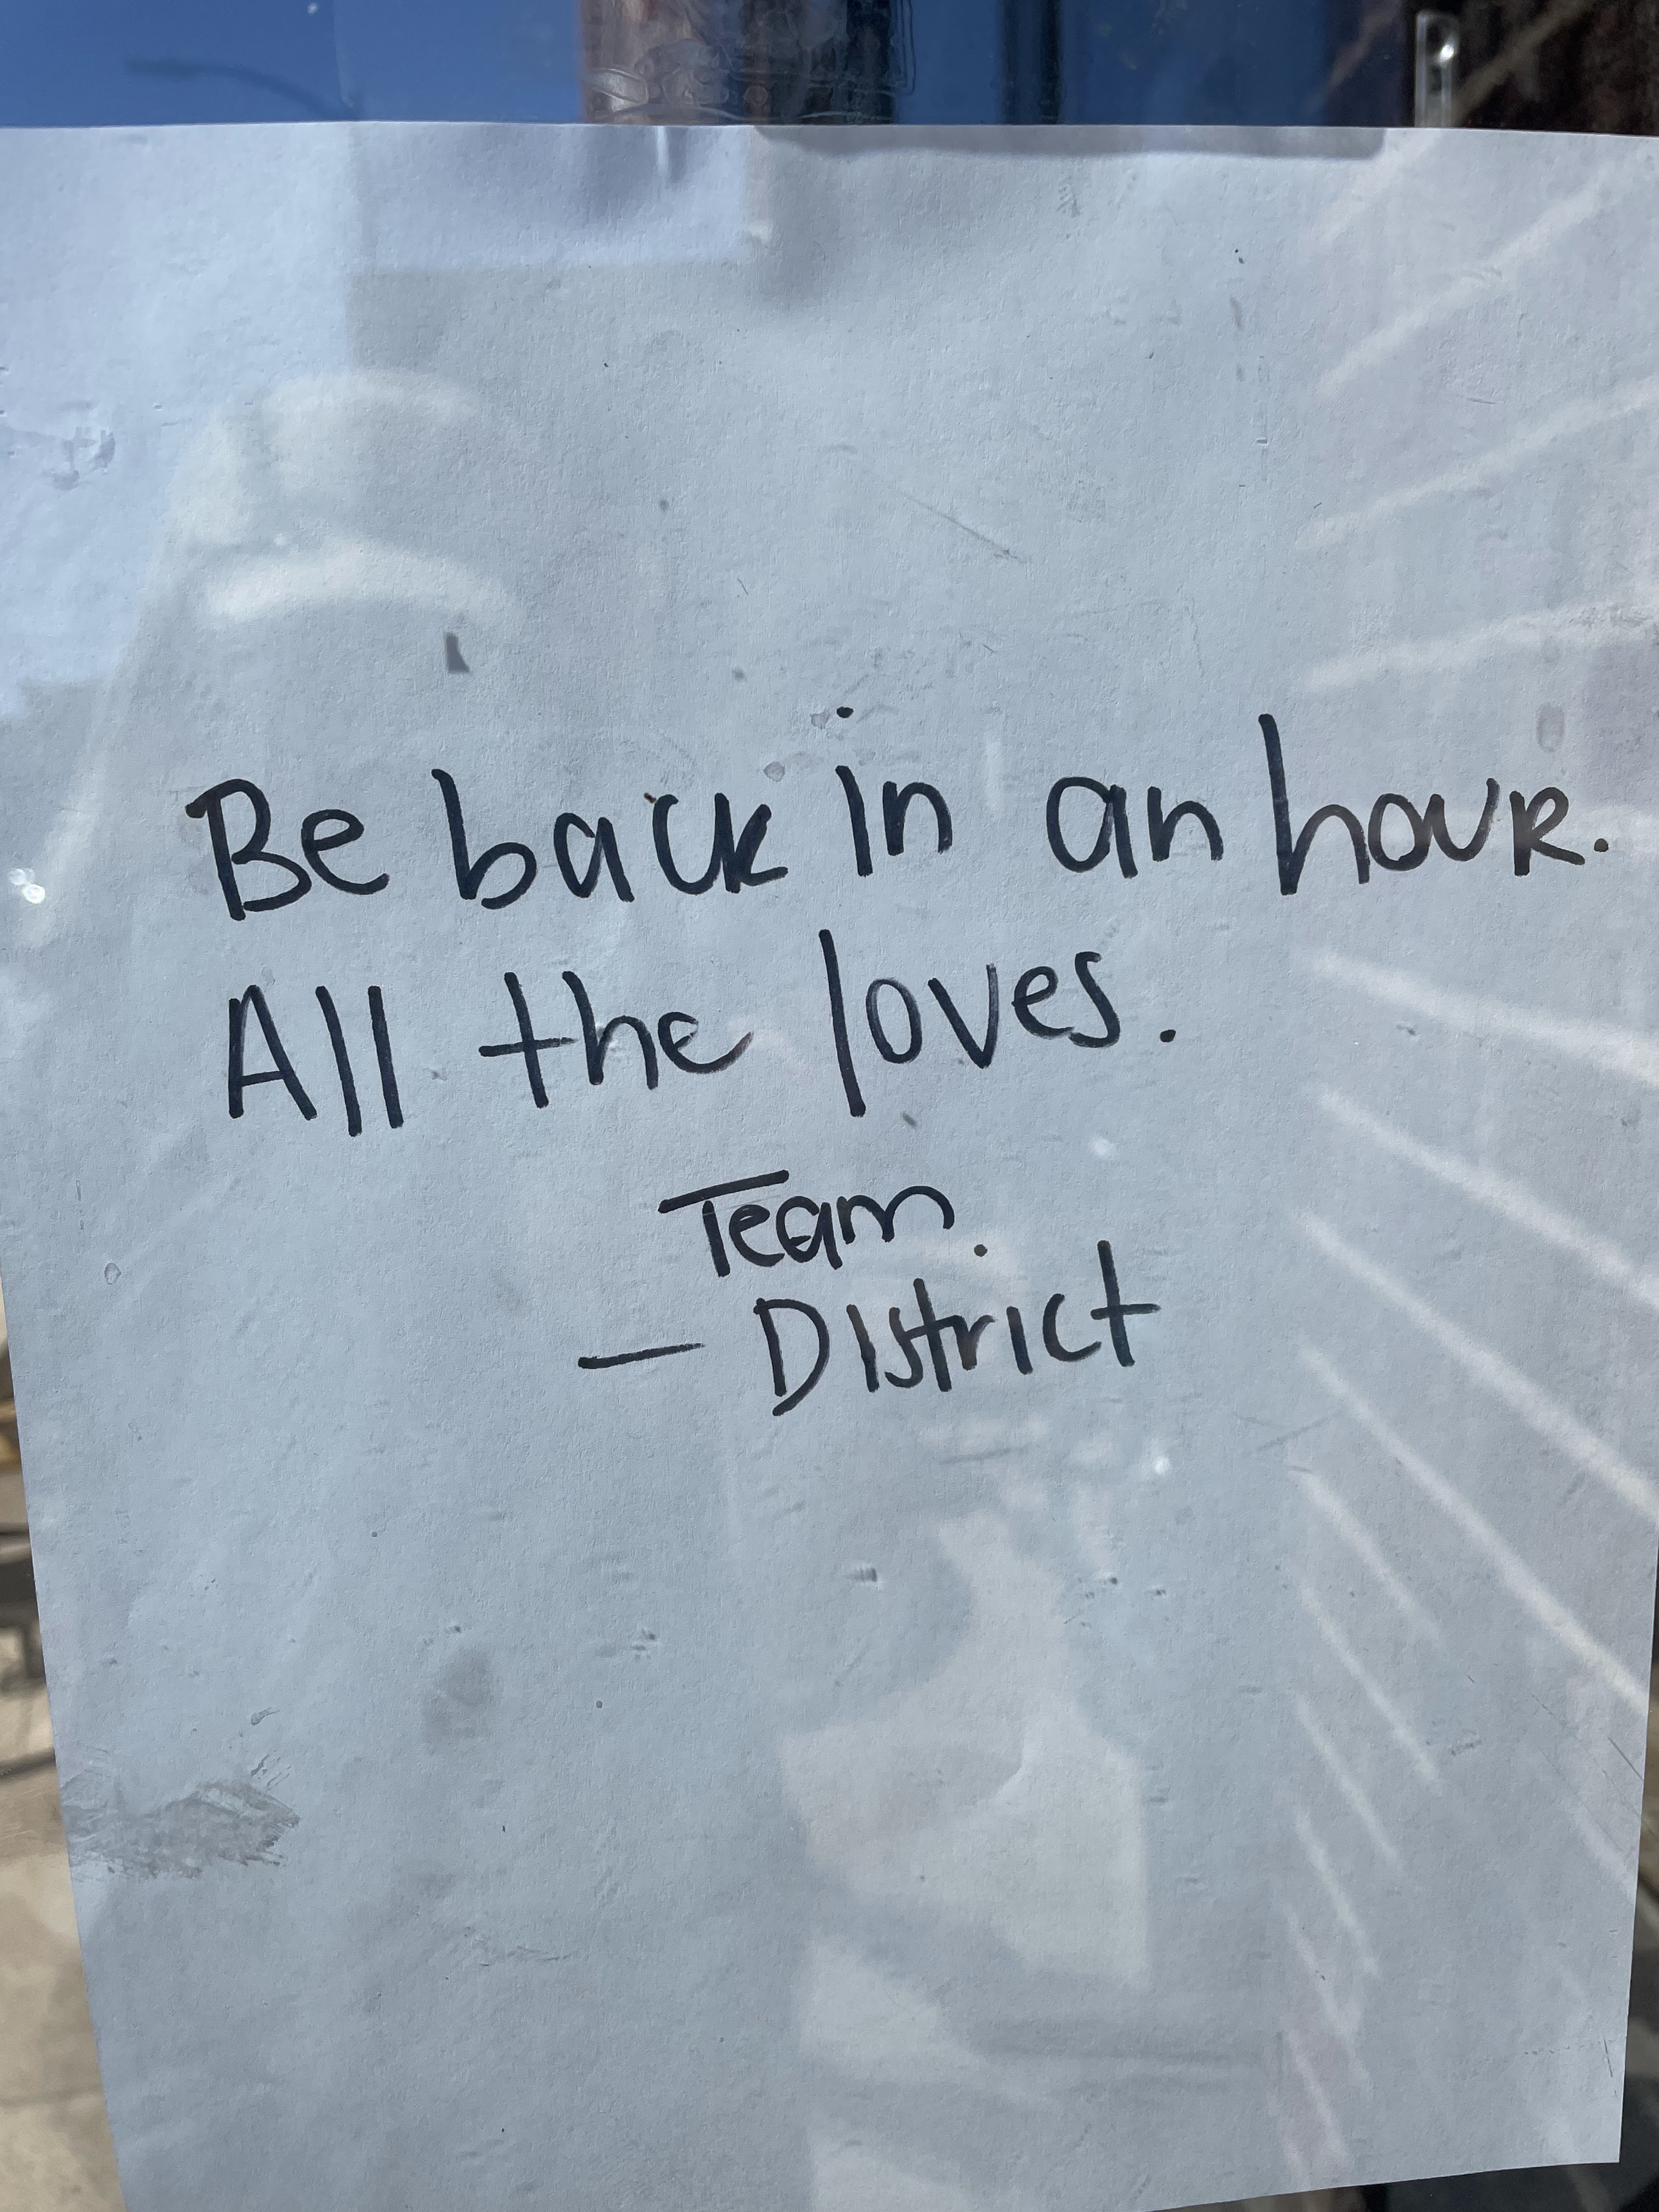 Be back in an hour.
All the loves.
Team
— District